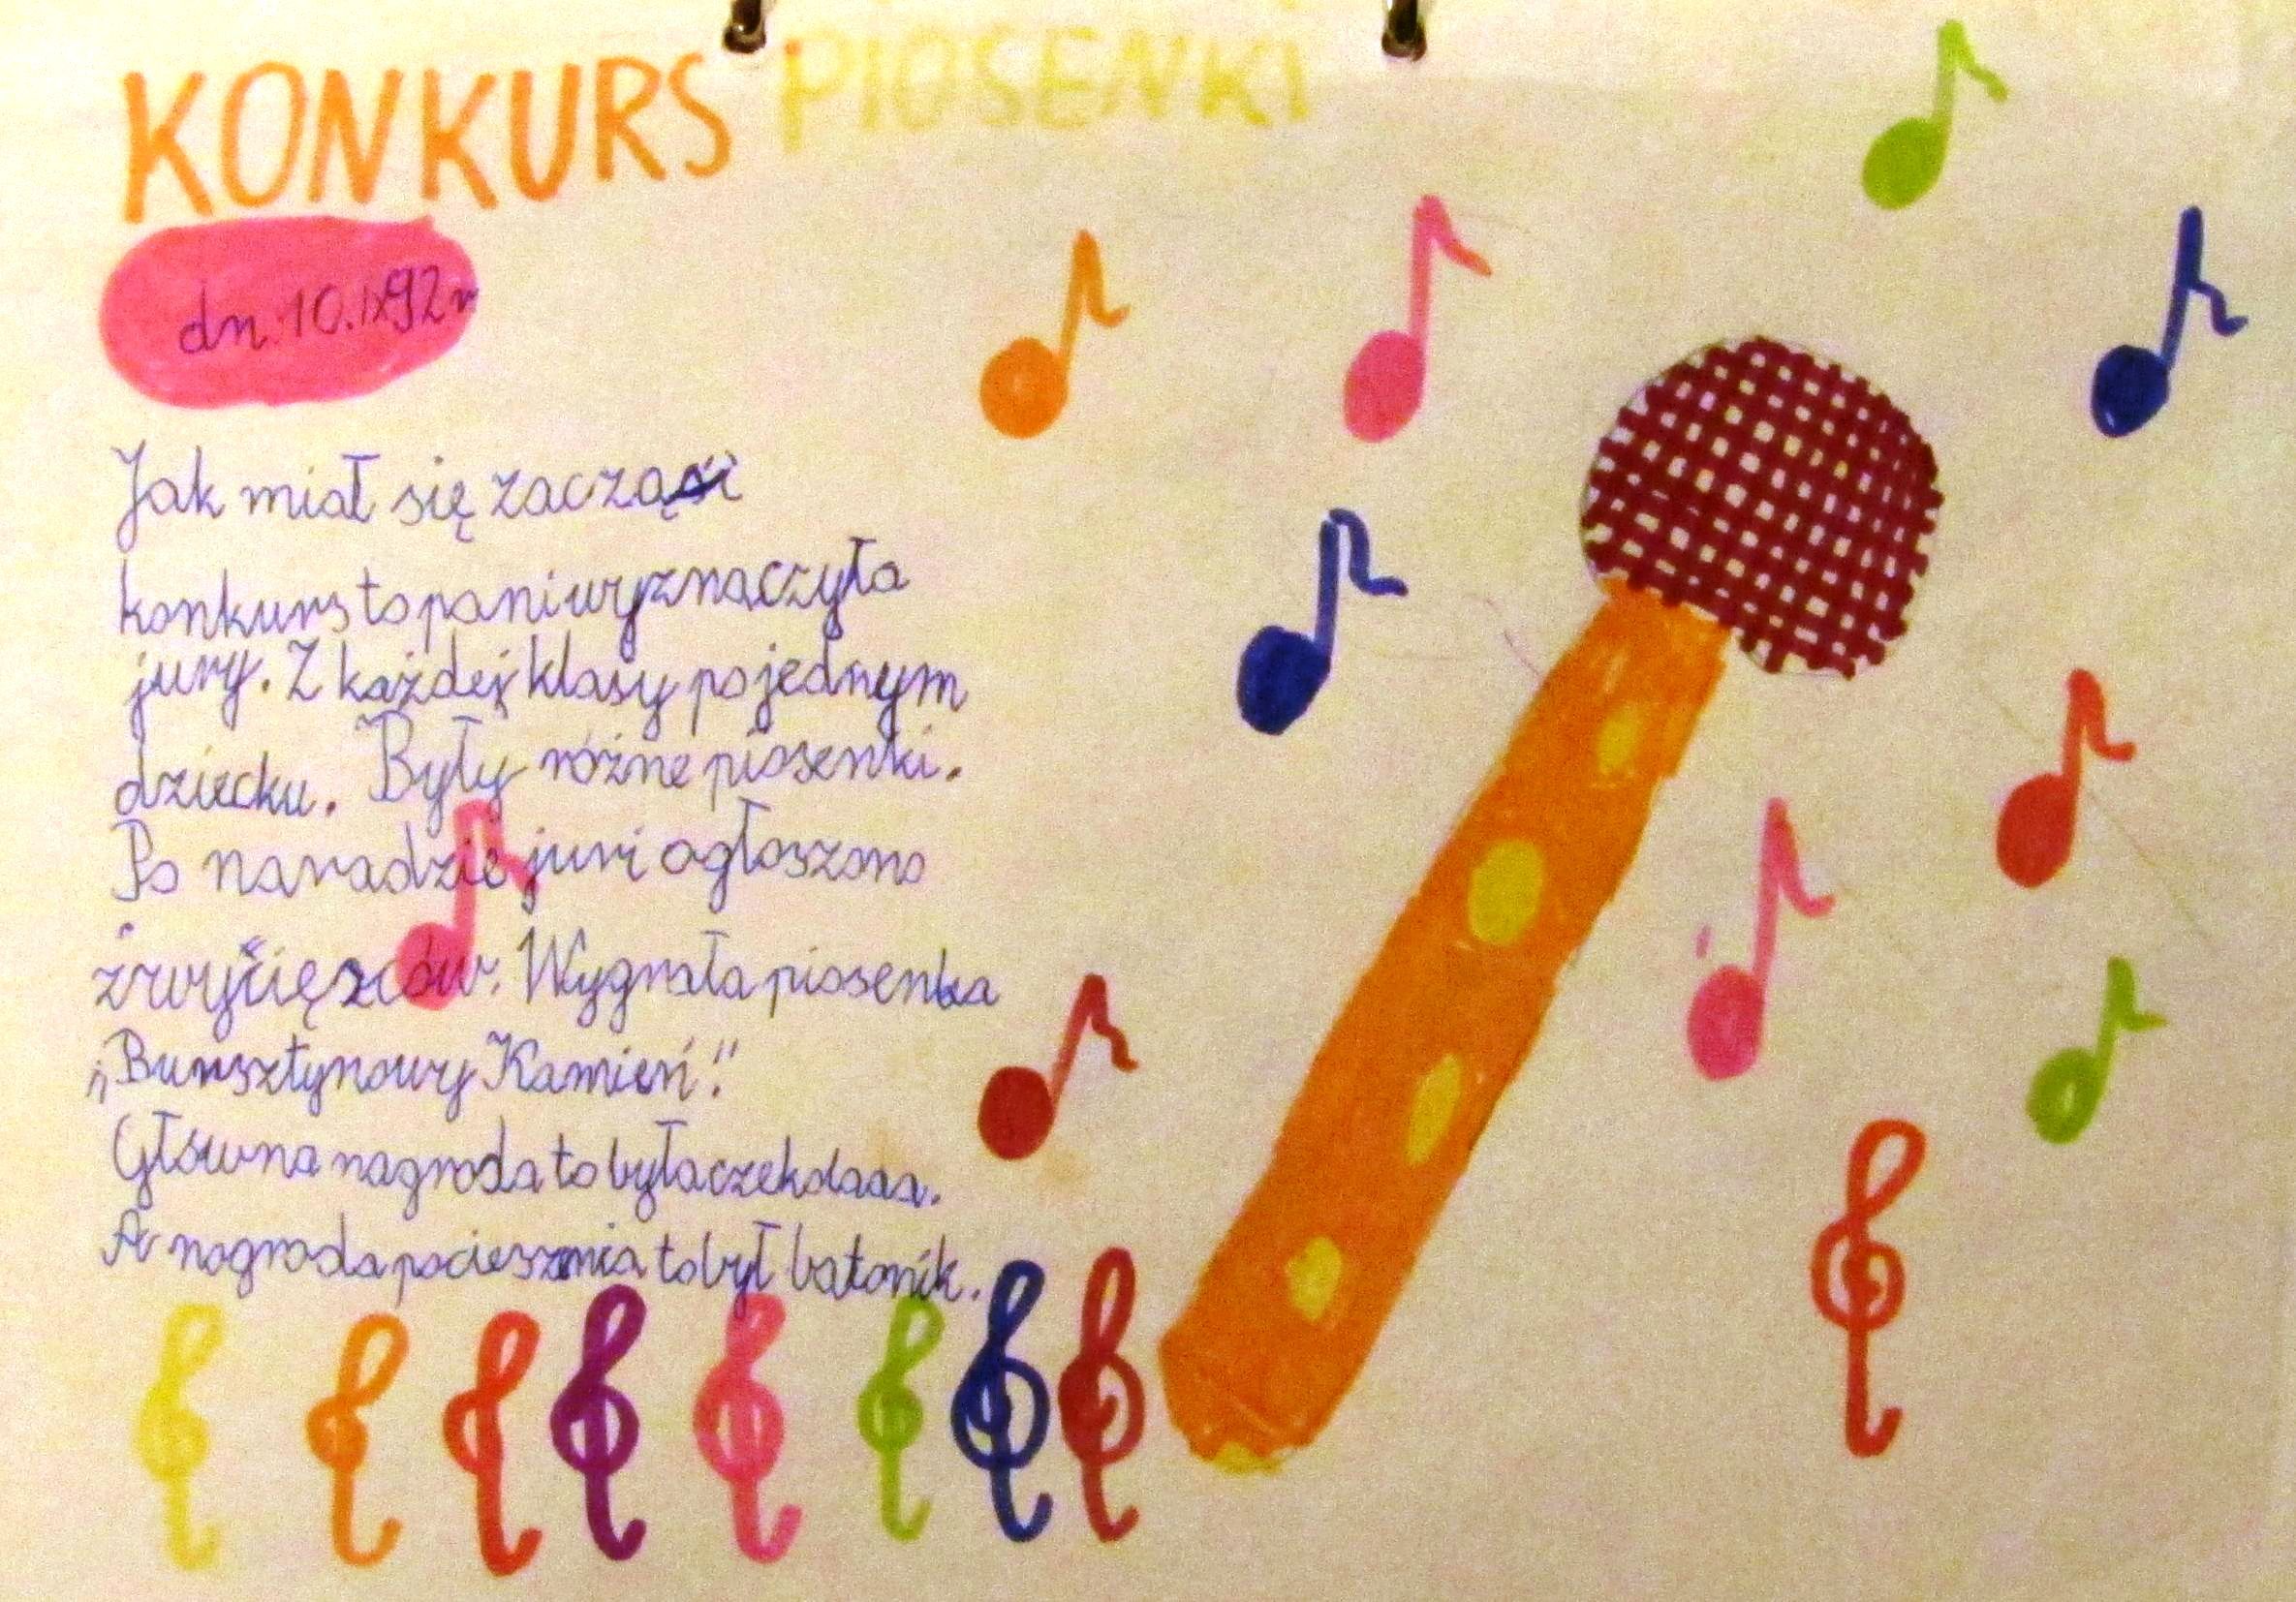 KONKURS PIOSENKI
dn. 10.IX92r
Jak miał się zacząś
konkurs to pani wyznaczyła
jury. Z każdej klasy po jednym
dziecku. Były różne piosenki.
Po naradzie juri ogłoszono
Wygrała piosenka
„Bursztynowy Kamień".
Główna nagroda to była czekolaaa.
A nagroda pocieszenia to był batonik.